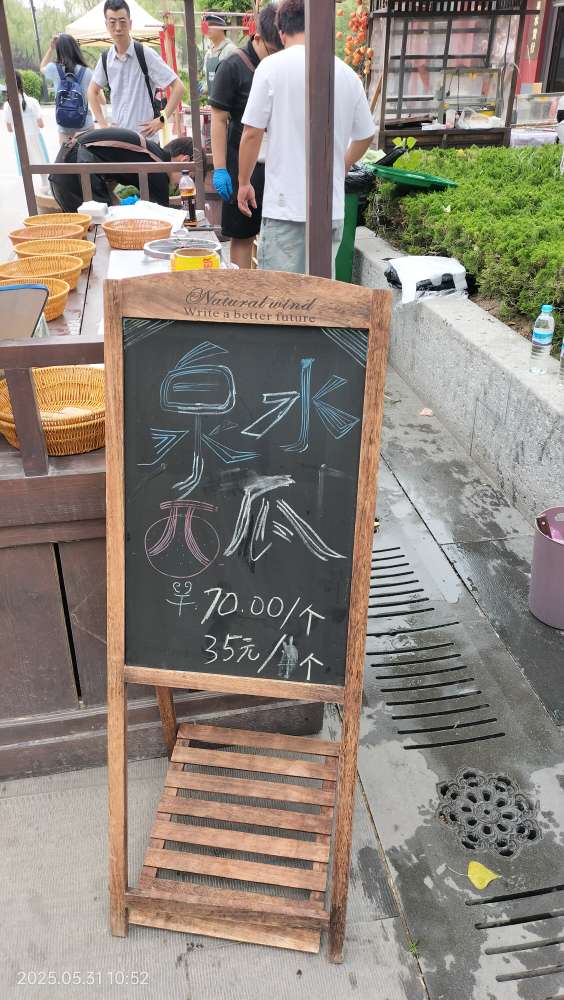 Natural wind
Write a better future
泉水
西瓜
￥70.00/个
35元/个
2025.05.31 10:52